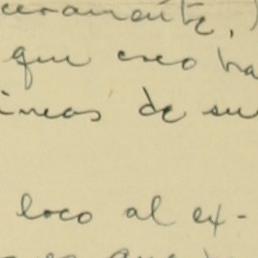 ceramente,
que creo ha
ineas de su
loco al ex-